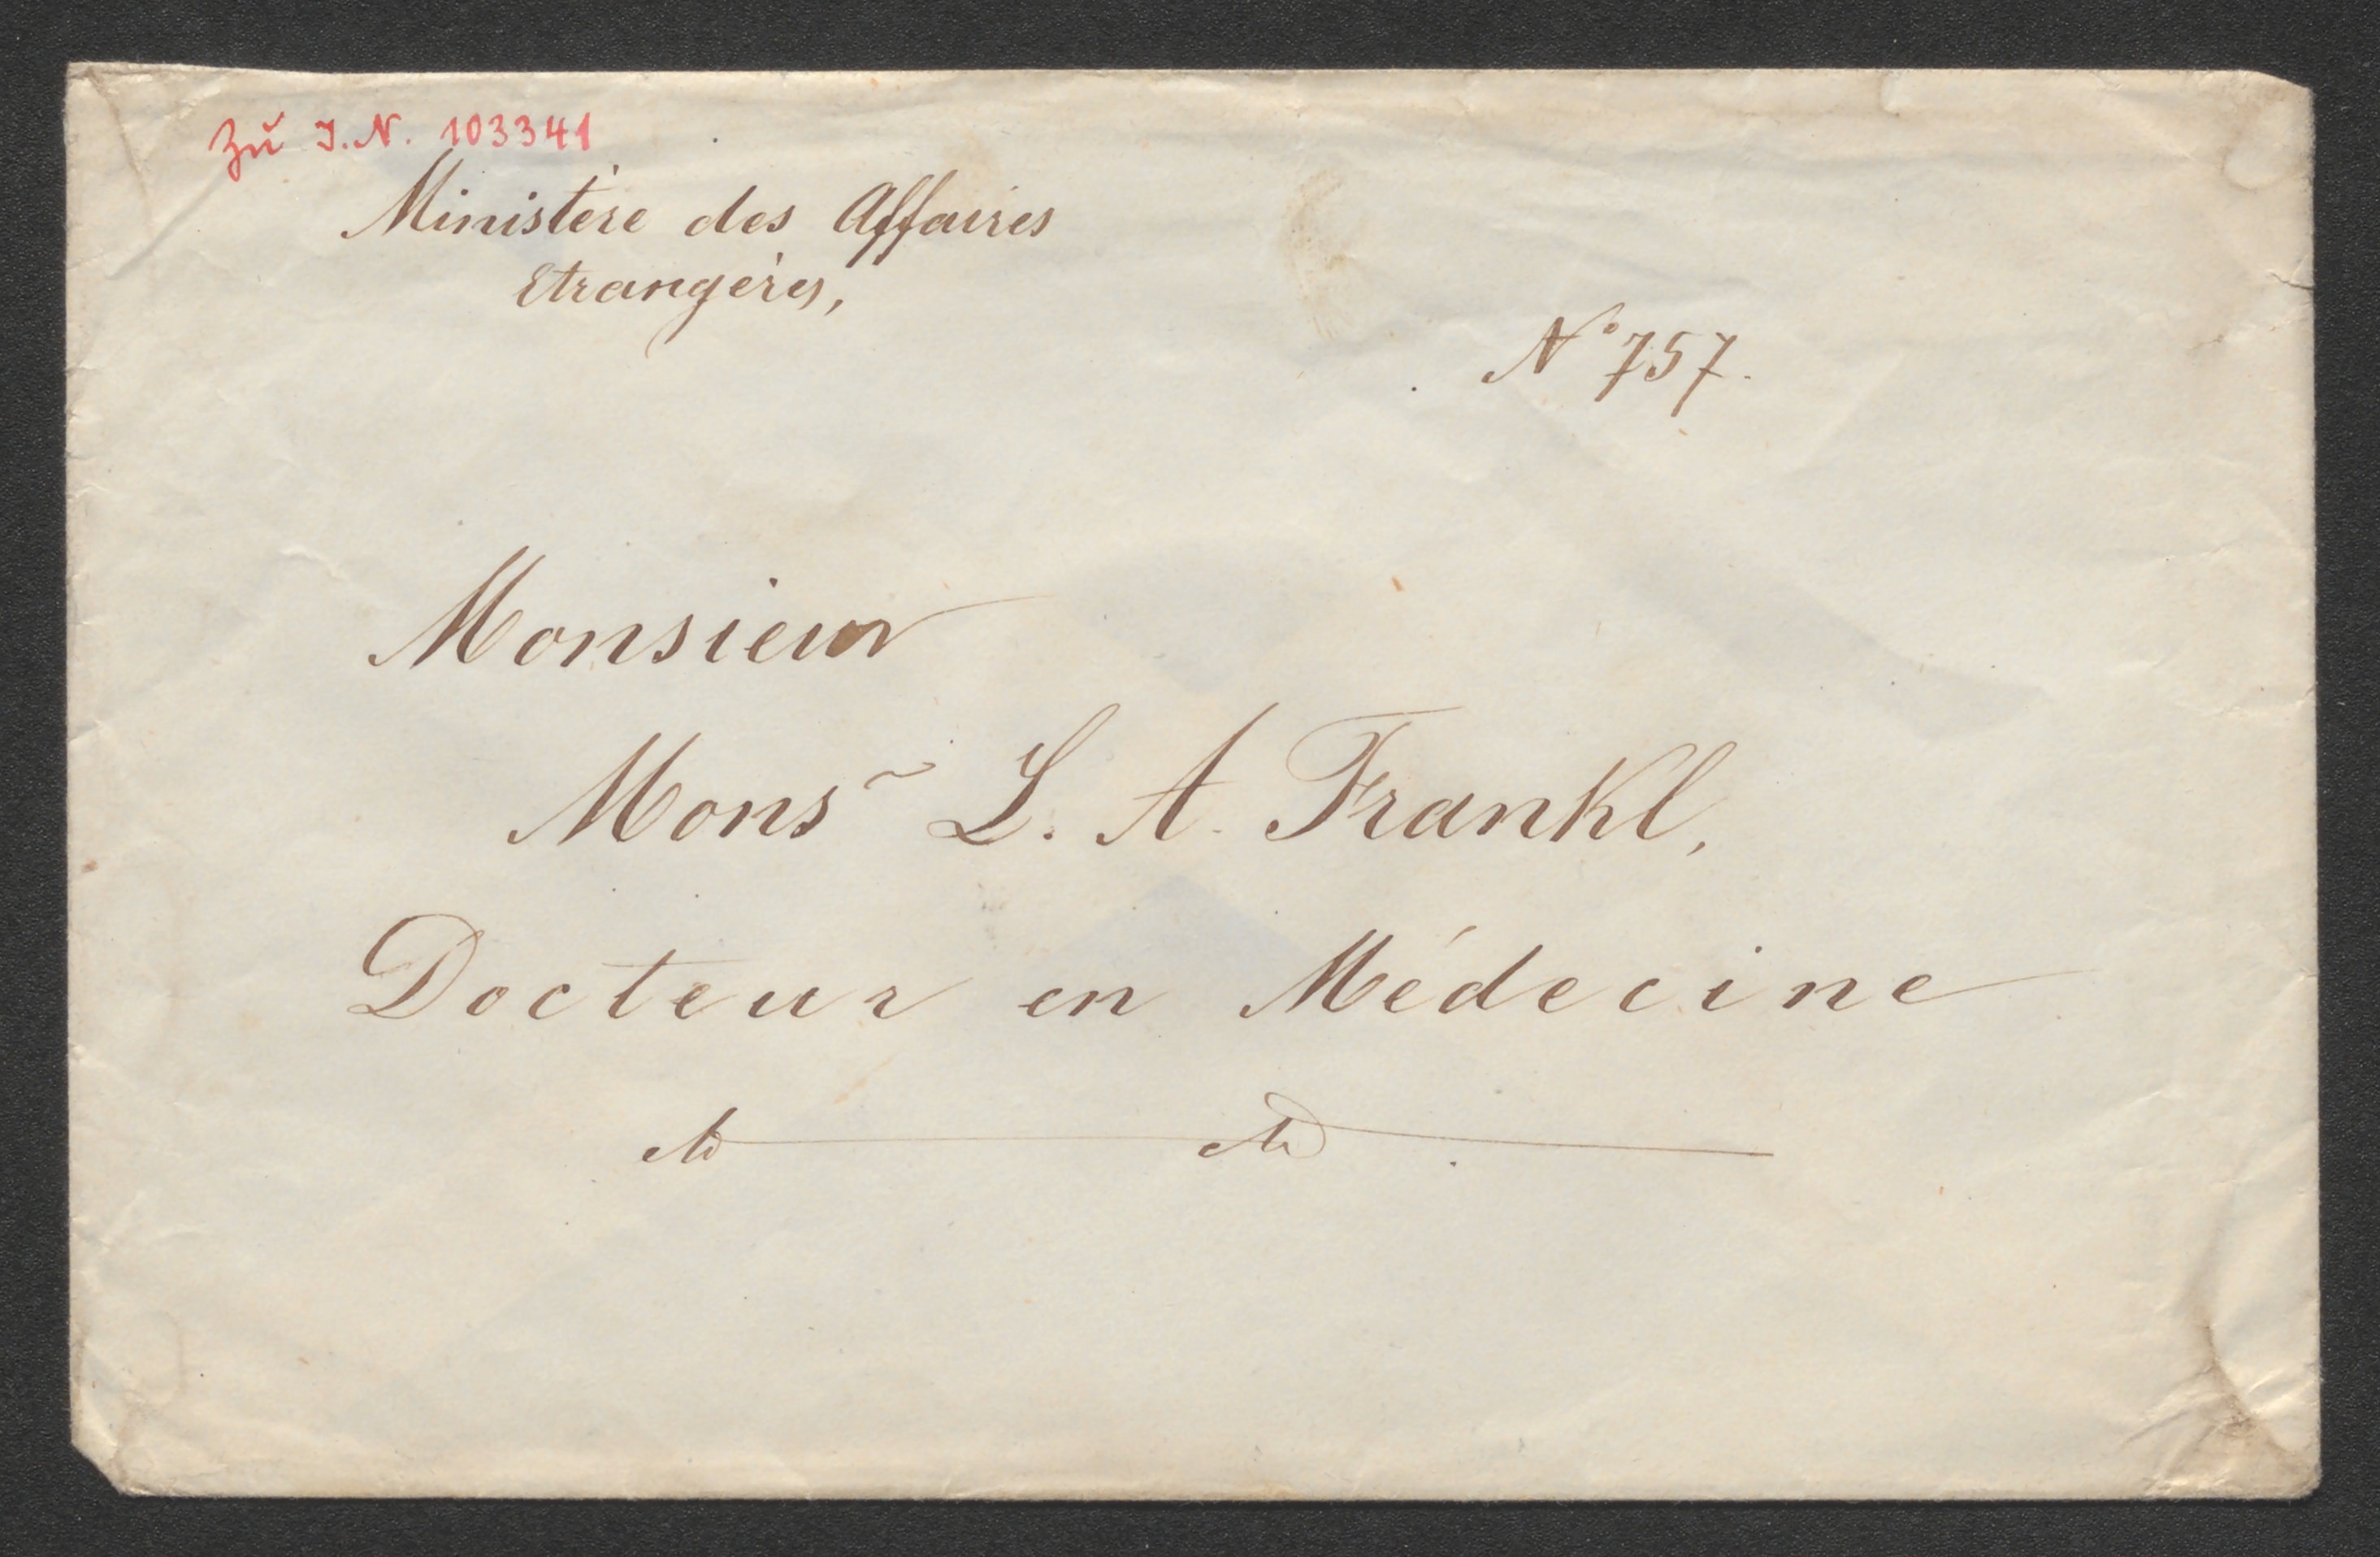 Zu I.N. 103341
Ministère des Affaires
Etrangères,
N° 757.
Monsieur
Mons~ L. A. Frankl,
Docteur en Médecine